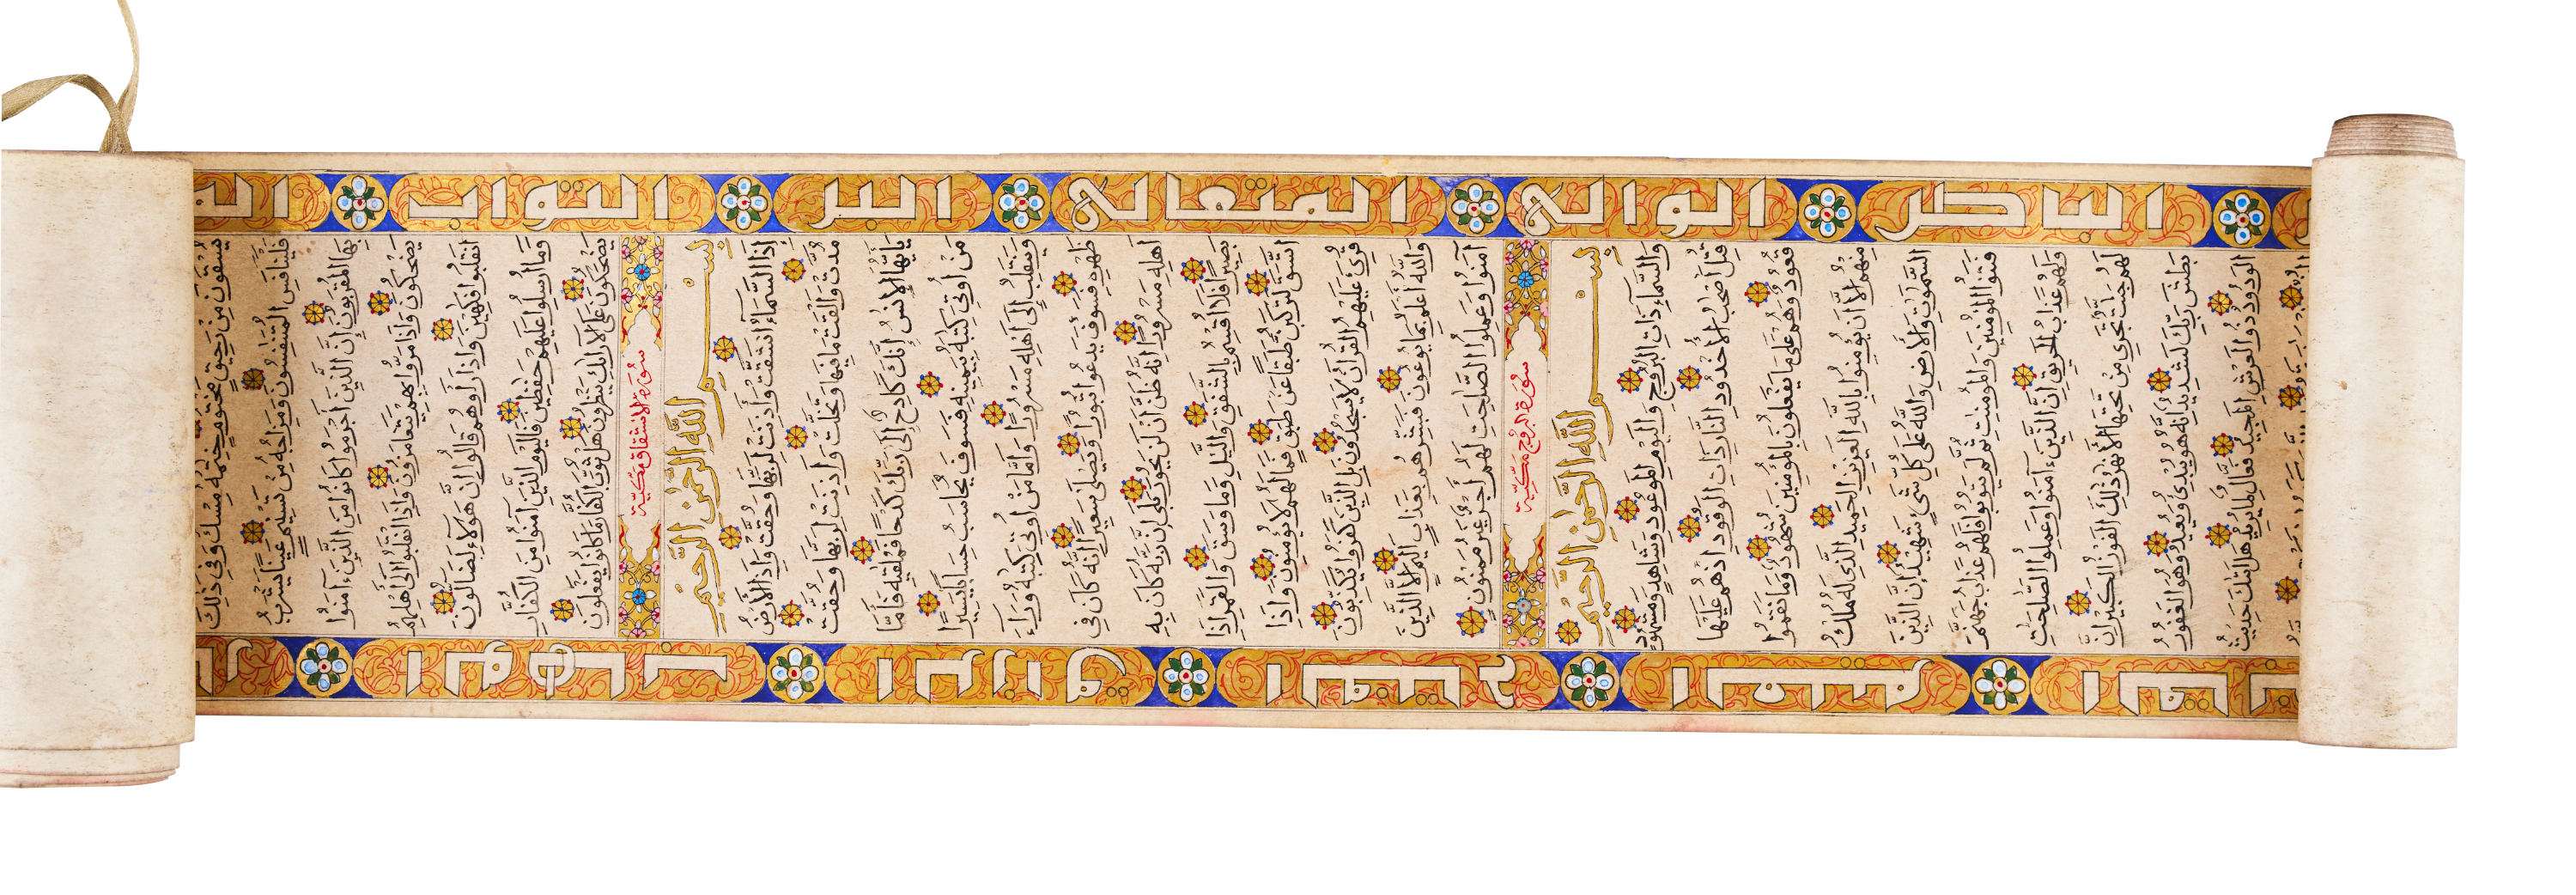 الباطن
الوالي
المتعالي
البر
التواب
يسقون من رحيق مختوم ختمه مسك وفي ذلك
فليتنافس المتنفسون ومزاجه من تسنيم عينا يشرب
بها المقربون إن الذين أجرموا كانوا من الذين ءامنوا
يضحكون وإذا مروا بهم يتغامزون وإذا انقلبوا إلى أهلهم
انقلبوا فكهين وإذا رأوهم قالوا إن هؤلاء لضالون
وما أرسلوا عليهم حفظين فاليوم الذين آمنوا من الكفار
يضحكون على الأرائك ينظرون هل ثوب الكفار ما كانوا يفعلون
سورة الانشقاق مكية
بسم الله الرحمن الرحيم
إذا السماء انشقت وأذنت لربها وحقت وإذا الأرض
مدت وألقت ما فيها وتخلت وأذنت لربها وحقت
يأيها الإنسن إنك كادح إلى ربك كدحا فملقيه فأما
من أوتي كتبه بيمينه فسوف يحاسب حسابا يسيرا
وينقلب إلى أهله مسرورا وأما من أوتي كتبه وراء
ظهره فسوف يدعوا ثبورا ويصلى سعيرا إنه كان في
أهله مسرورا إنه ظن أن لن يحور بلى إن ربه كان به
بصيرا فلا أقسم بالشفق والليل وما وسق والقمر إذا
اتسق لتركبن طبقا عن طبق فما لهم لا يؤمنون وإذا
قرئ عليهم القرآن لا يسجدون بل الذين كفروا يكذبون
والله أعلم بما يوعون فبشرهم بعذاب أليم إلا الذين
آمنوا وعملوا الصلحت لهم أجر غير ممنون
سورة البروج مكية
بسم الله الرحمن الرحيم
والسماء ذات البروج واليوم الموعود وشاهد ومشهود
قتل أصحب الأخدود النار ذات الوقود إذ هم عليها
قعود وهم على ما يفعلون بالمؤمنين شهود وما نقموا
منهم إلا أن يؤمنوا بالله العزيز الحميد الذي له ملك
السموت والأرض والله على كل شيء شهيد إن الذين
فتنوا المؤمنين والمؤمنت ثم لم يتوبوا فلهم عذاب جهنم
ولهم عذاب الحريق إن الذين ءامنوا وعملوا الصلحت
لهم جنت تجري من تحتها الأنهر ذلك الفوز الكبير إن
بطش ربك لشديد إنه هو يبدئ ويعيد وهو الغفور
الودود ذو العرش المجيد فعال لما يريد هل أتىك حديث